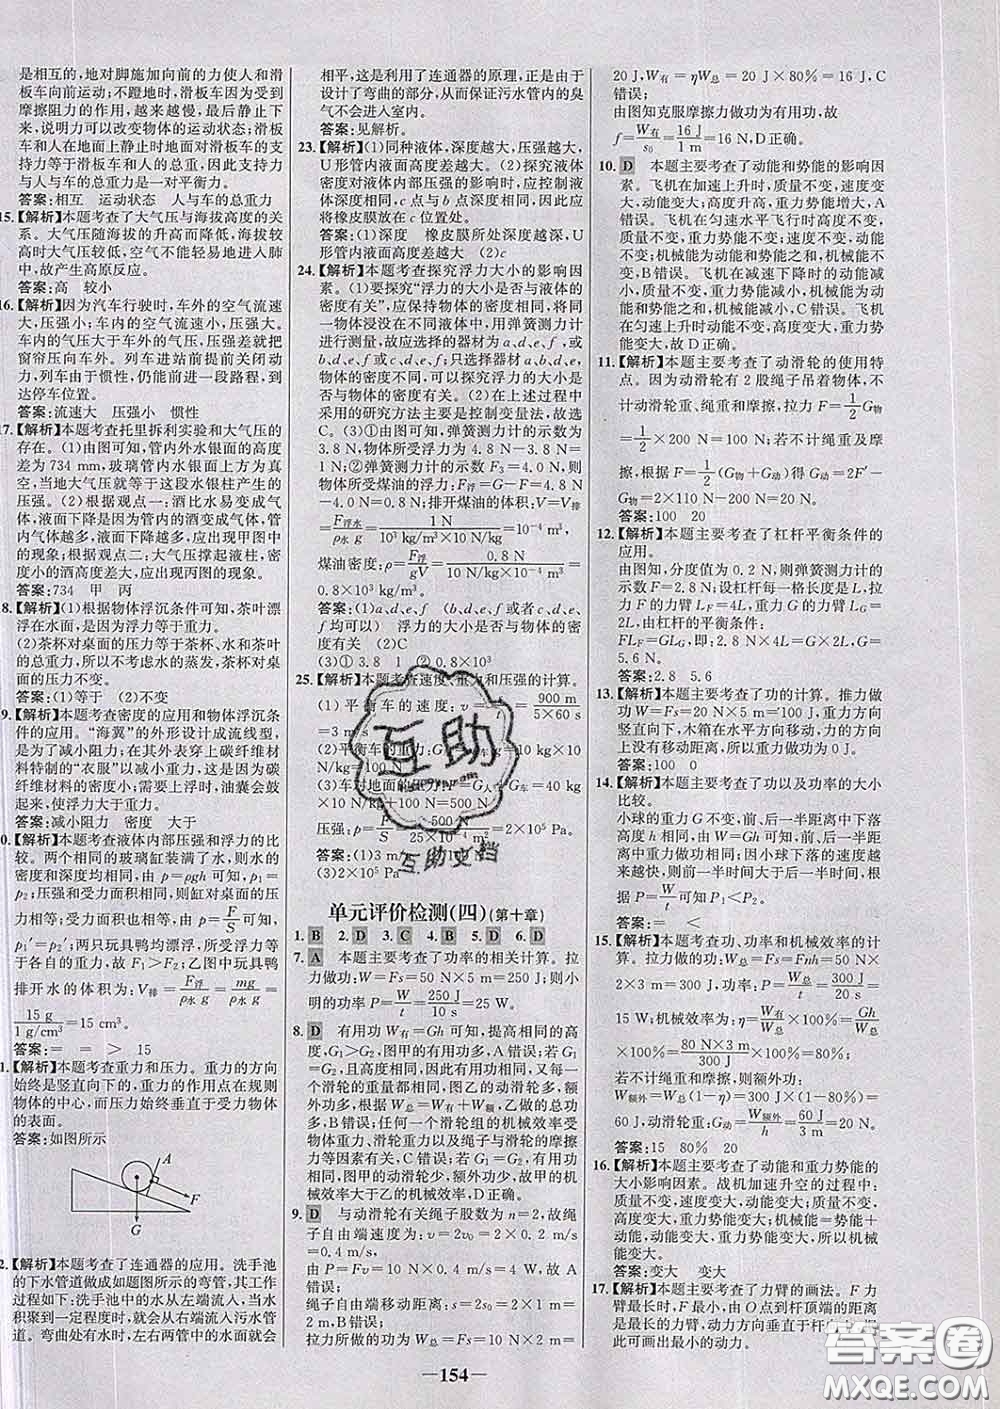 是相互的,地对脚施加向前的力使人和滑
板车向前运动;不蹬地时,滑板车因为受到
摩擦阻力的作用,越来越慢,最后静止下
来,说明力可以改变物体的运动状态;滑板
车和人在水平面上静止时地面对滑板车的
支持力等于滑板车和人的总重,因此支持力
与人与车的总重力是一对平衡力。
答案:相互 运动状态 人与车的总重力
15.【解析】本题考查了大气压与海拔高度的关
系。大气压随海拔的升高而降低,海拔较
高时大气压较低,空气不容易进入人的肺
中,故产生高原反应。
答案:高 较小
16.【解析】因为汽车行驶时,车外的空气流速
大,压强小;车内的空气流速小,压强大。
车内的气压大于车外的气压,压强差就把
窗帘压向车外。列车进站前提前关闭动
力,列车由于惯性,仍能前进一段路程,到
达停车位置。
答案:流速大 压强小 惯性
17.【解析】本题考查托里拆利实验和大气压的
存在。(1)由图可知,管内外水银面的高度
差为734 mm,玻璃管内水银面的上方是真
空,当地大气压就等于这段水银柱产生的
压强。(2)根据观点一:酒比水易变成气
体,液面下降是因为管内的酒变成气体,管
内气体越多,液面下降越多,应出现甲图中
的现象;根据观点二:大气压撑起液柱,密
度小的酒高度大,应出现丙图的现象。
答案:734 甲 丙
18.【解析】(1)根据物体浮沉条件可知,茶叶漂
浮在水面上,是因为浮力等于重力。
(2)茶杯对桌面的压力等于茶杯、水和茶叶
的总重力,所以如果不考虑水的蒸发,茶杯
对桌面的压力不变。
答案:(1)等于 (2)不变
9.【解析】本题考查密度的应用和物体浮沉条
件的应用。“海翼”的外形设计成流线型,
是为了减小阻力;在其外表穿上碳纤维材料
特制的“衣服”以减小重力,主要是因为碳
纤维材料密度小;需要上浮时,油囊会鼓起
来,使浮力大于重力。
答案:减小阻力 密度 大于
0.【解析】本题考查液体内部压强和浮力的比
较。两个相同的玻璃缸装满了水,则水的
密度和深度均相同,由 p=ρgh 可知,p₁=
p₂;压强和受力面积相同,则缸对桌面的压
力相同,受力面积也相同,由 p=F/S 可知,
p₁′=p₂′;两只玩具鸭均漂浮,浮力等于重
力,故 F₁>F₂;乙图中玩具鸭
排开水的体积为:V排=F浮/ρ水g=mg/ρ水g=
15 g/1 g/cm³=15 cm³。
答案:= = > 15
1.【解析】本题考查重力和压力。重力的方向
始终是竖直向下的,重力的作用点在规则
物体的中心,而压力始终垂直于受力物体
的表面。
答案:如图所示
A
F
G
2.【解析】本题考查了连通器的应用。洗手池
的下水管道做成如题图所示的弯管,其工作
过程如下:洗手池中的水从左端流入,当水
积聚到一定程度时,就会从右端流入污水管
道。弯曲处有水时,左右两管中的水面就会
相平,这是利用了连通器的原理,正是由于
设计了弯曲的部分,从而保证污水管内的臭
气不会进入室内。
答案:见解析。
23.【解析】(1)同种液体,深度越大,压强越大,
U形管内液面高度差越大。(2)探究液体
密度对液体内部压强的影响时,应控制液
体深度相同,c点与b点深度相同,但密度不
同,应将橡皮膜放在c位置处。
答案:(1)深度 橡皮膜所处深度越深,U形
管内液面高度差越大 (2)c
24.【解析】本题考查探究浮力大小的影响因
素。(1)要探究“浮力的大小是否与液体的
密度有关”,应保持物体的密度相同,将同
一物体浸没在不同液体中,用弹簧测力计进
行测量,故应选择的器材为a、d、e、f,或
b、d、e、f或c、d、e、f;只选择器材a、b、d、e,
物体的密度不同,可以探究浮力的大小是
否与物体的密度有关。(2)在上述过程中
采用的研究方法主要是控制变量法,故选
C。(3)①由图知,弹簧测力计的示数为
3.8 N,物体所受浮力为4.8 N-3.8 N=
1 N;②弹簧测力计的示数 F₃=4.0 N,则
物体所受煤油的浮力:F浮=G-F=4.8 N
-4.0 N=0.8 N;排开煤油的体积:V=V排
=F浮水/ρ水g=1 N/10³ kg/m³×10 N/kg=10⁻⁴ m³,
煤油密度:ρ=F浮/gV=0.8 N/10 N/kg×10⁻⁴ m³=
0.8×10³ kg/m³。
答案:(1)a、d、e、f (b、d、e、f或者c、d、e、
f均可以) 浮力的大小是否与物体的密
度有关 (2)C
(3)① 3.8 1 ②0.8×10³
25.【解析】本题考查速度、重力和压强的计算。
(1)平衡车的速度:v=s/t=900 m/5×60 s
=3 m
(2)平衡车的重力:G车=m车g=10 kg×10
N/kg=100 N
(3)车对地面的压力:F=G人+G车=40 kg
×10 N/kg+100 N=500 N
压强:p=F/S=500 N/25×10⁻⁴ m²=2×10⁵ Pa。
答案:(1)3 m
(3)2×10⁵ Pa
单元评价检测(四)(第十章)
1. B 2. D 3. C 4. B 5. D 6. D
7. A 本题主要考查了功率的相关计算。拉
力做功:W=Fs=50 N×5 m=250 J;则小
明的功率 P=W/t=250 J/10 s=25 W。
8. D 有用功 W有=Gh 可知,提高相同的高
度,G₁>G₂,图甲的有用功多,A错误;若 G₁
=G₂,则有用功相同,又由于两图中动滑轮
和绳的重量都相同,图乙的动滑轮多,额外
功多,根据 W总=W有+W额,乙做的总功多,
B错误;任何一个滑轮组的机械效率与物
体重力、滑轮重力以及绳子与滑轮的摩擦
力等都有关,C错误;若 G₁=G₂,则有用功相
同,图甲的滑轮个数少,额外功少,故甲的机
械效率大于乙的机械效率,D正确。
9. D 与动滑轮有关绳子股数为 n=2,故绳
子自由端速度为:v=2v₀=2×0.2 m/s=
0.4 m/s,由 P=Fv=10 N×0.4 m/s=
4 W,B错误;故A错
绳子自由端移动距离:s=2s₀=2×1 m=2 m,
拉力所做的功为 W总=Fs=10 N×2 m=
20 J,W有=ηW总=20 J×80%=16 J,C
错误;
由图知克服摩擦力做功为有用功,故
f=W有/s₀=16 J/1 m=16 N,D正确。
10. D 本题主要考查了动能和势能的影响因
素。飞机在加速上升时,质量不变,速度变
大,动能变大;高度升高,重力势能增大,A
错误。飞机在匀速水平飞行时高度不变,
速度不变,质量不变,重力势能不变,动能
不变;机械能为动能与势能之和,机械能不
变,B错误。飞机在减速下降时,动能减
小,质量不变,重力势能减小,机械能为动
能和势能之和,机械能减小,C错误。飞机
在匀速上升时,高度变大,质量不变,重力势
能变大,D正确。
11.【解析】本题主要考查了动滑轮的使用特
点。因为动滑轮有2股绳子吊着物体,不
计动滑轮重、绳重和摩擦,拉力 F=1/2G物
=1/2×200 N=100 N;若不计绳重及摩
擦,根据 F=1/2(G物+G动)得 G动=2F′-
G物=2×110 N-200 N=20 N。
答案:100 20
12.【解析】本题主要考查了杠杆平衡条件的
应用。
由图知,分度值为0.2 N,因此弹簧测力计
的示数为2.8 N;设杠杆每一格长度是L,拉
力F的力臂 LF=4L,重力G的力臂 LG=
2L,由杠杆的平衡条件:
FLF=GLG,即:2.8 N×4L=G×2L,G=
5.6 N。
答案:2.8 5.6
13.【解析】本题主要考查了功的计算。推力做
功 W=Fs=20 N×5 m=100 J;重力方向竖
直向下,木箱在水平方向移动,力的方向与
运动方向垂直,故重力做功为0 J。
答案:100 0
14.【解析】本题主要考查了功以及功率的大小
比较。
小球的重力G不变,前、后一半距离
都相同,由于 W=Gh 可知,前、后一半距
离重力做功相同;因为小球下落的速度越
来越快,则前一半时间大于后一半时间,根据
P=W/t可知 P₁<P₂。
答案:= <
15.【解析】本题考查功、功率和机械效率的计
算。拉力的做功:W=Fs=Fnh=50 N×
2×3 m=300 J,功率:P=W/t=300 J/20 s=
15 W;机械效率为:η=W有/W总×100%=Gh/W总
×100%=80 N×3 m/300 J×100%=80%
若不计绳重和摩擦,则额外功:
W额外=W总-W有=300 J-80 N×3 m
=60 J,动滑轮重:G动=W额外/h=60 J/3 m=20 N。
答案:15 80% 20
16.【解析】本题主要考查了动能和重力势能的
大小影响因素。战机加速升空的过程中:
质量不变,速度变大,动能变大;质量不变,
高度变大,重力势能变大;机械能=势能+
动能,动能变大,重力势能变大,故
机械能变大。
答案:变大 变大
17.【解析】本题主要考查了力臂的画法。F力
臂最长时,F最小,由O点到杆顶端的距离
是最长的力臂,动力方向垂直于
可画出最小的动力。
互助
互助文档
答案圈
MXQE.COM
—154—